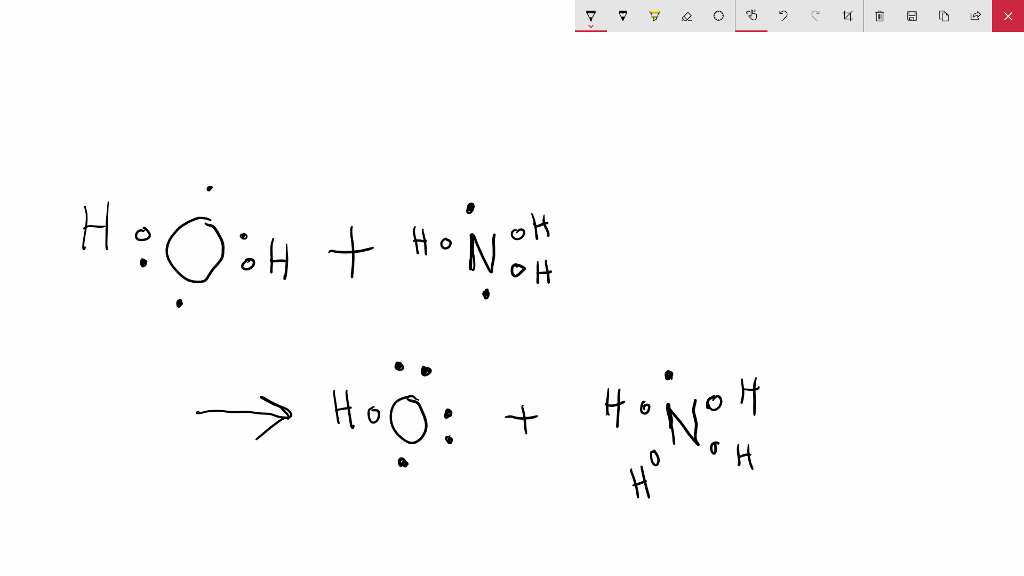 H O H + H N H H
→ H O + H N H H H